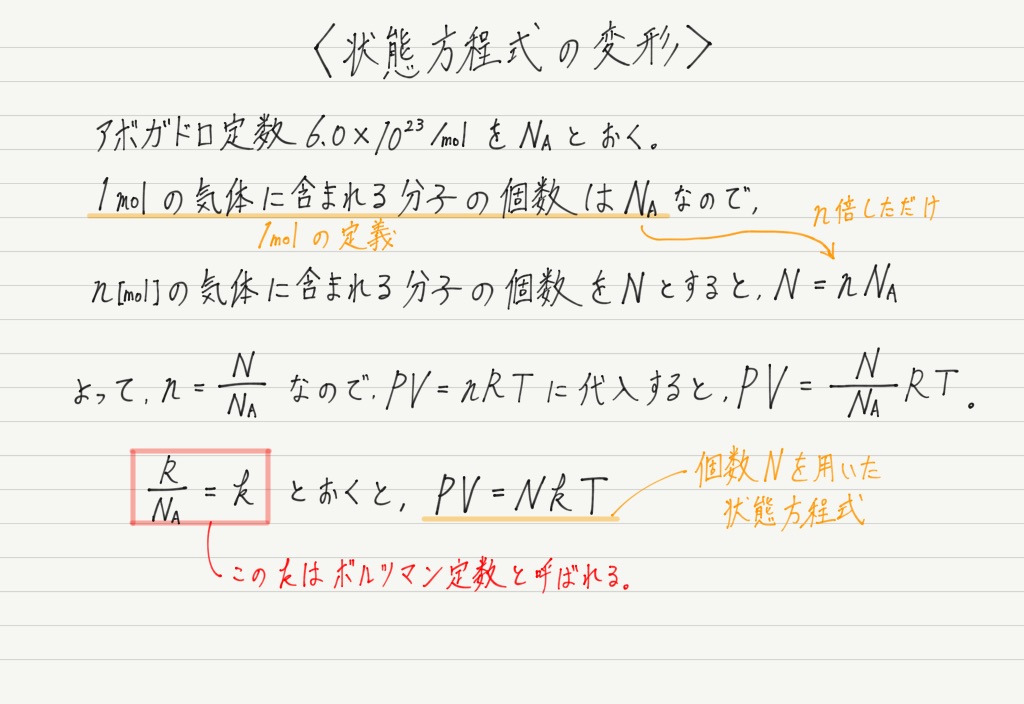 〈状態方程式の変形〉
アボガドロ定数 6.0×10²³/mol を N_A とおく。
1mol の気体に含まれる分子の個数は N_A なので,
1mol の定義
n倍しただけ
n[mol]の気体に含まれる分子の個数を N とすると, N = nN_A
よって, n = N/N_A なので, PV = nRT に代入すると, PV = N/N_A RT。
R/N_A = k とおくと, PV = NkT
個数 N を用いた
状態方程式
この k はボルツマン定数と呼ばれる。